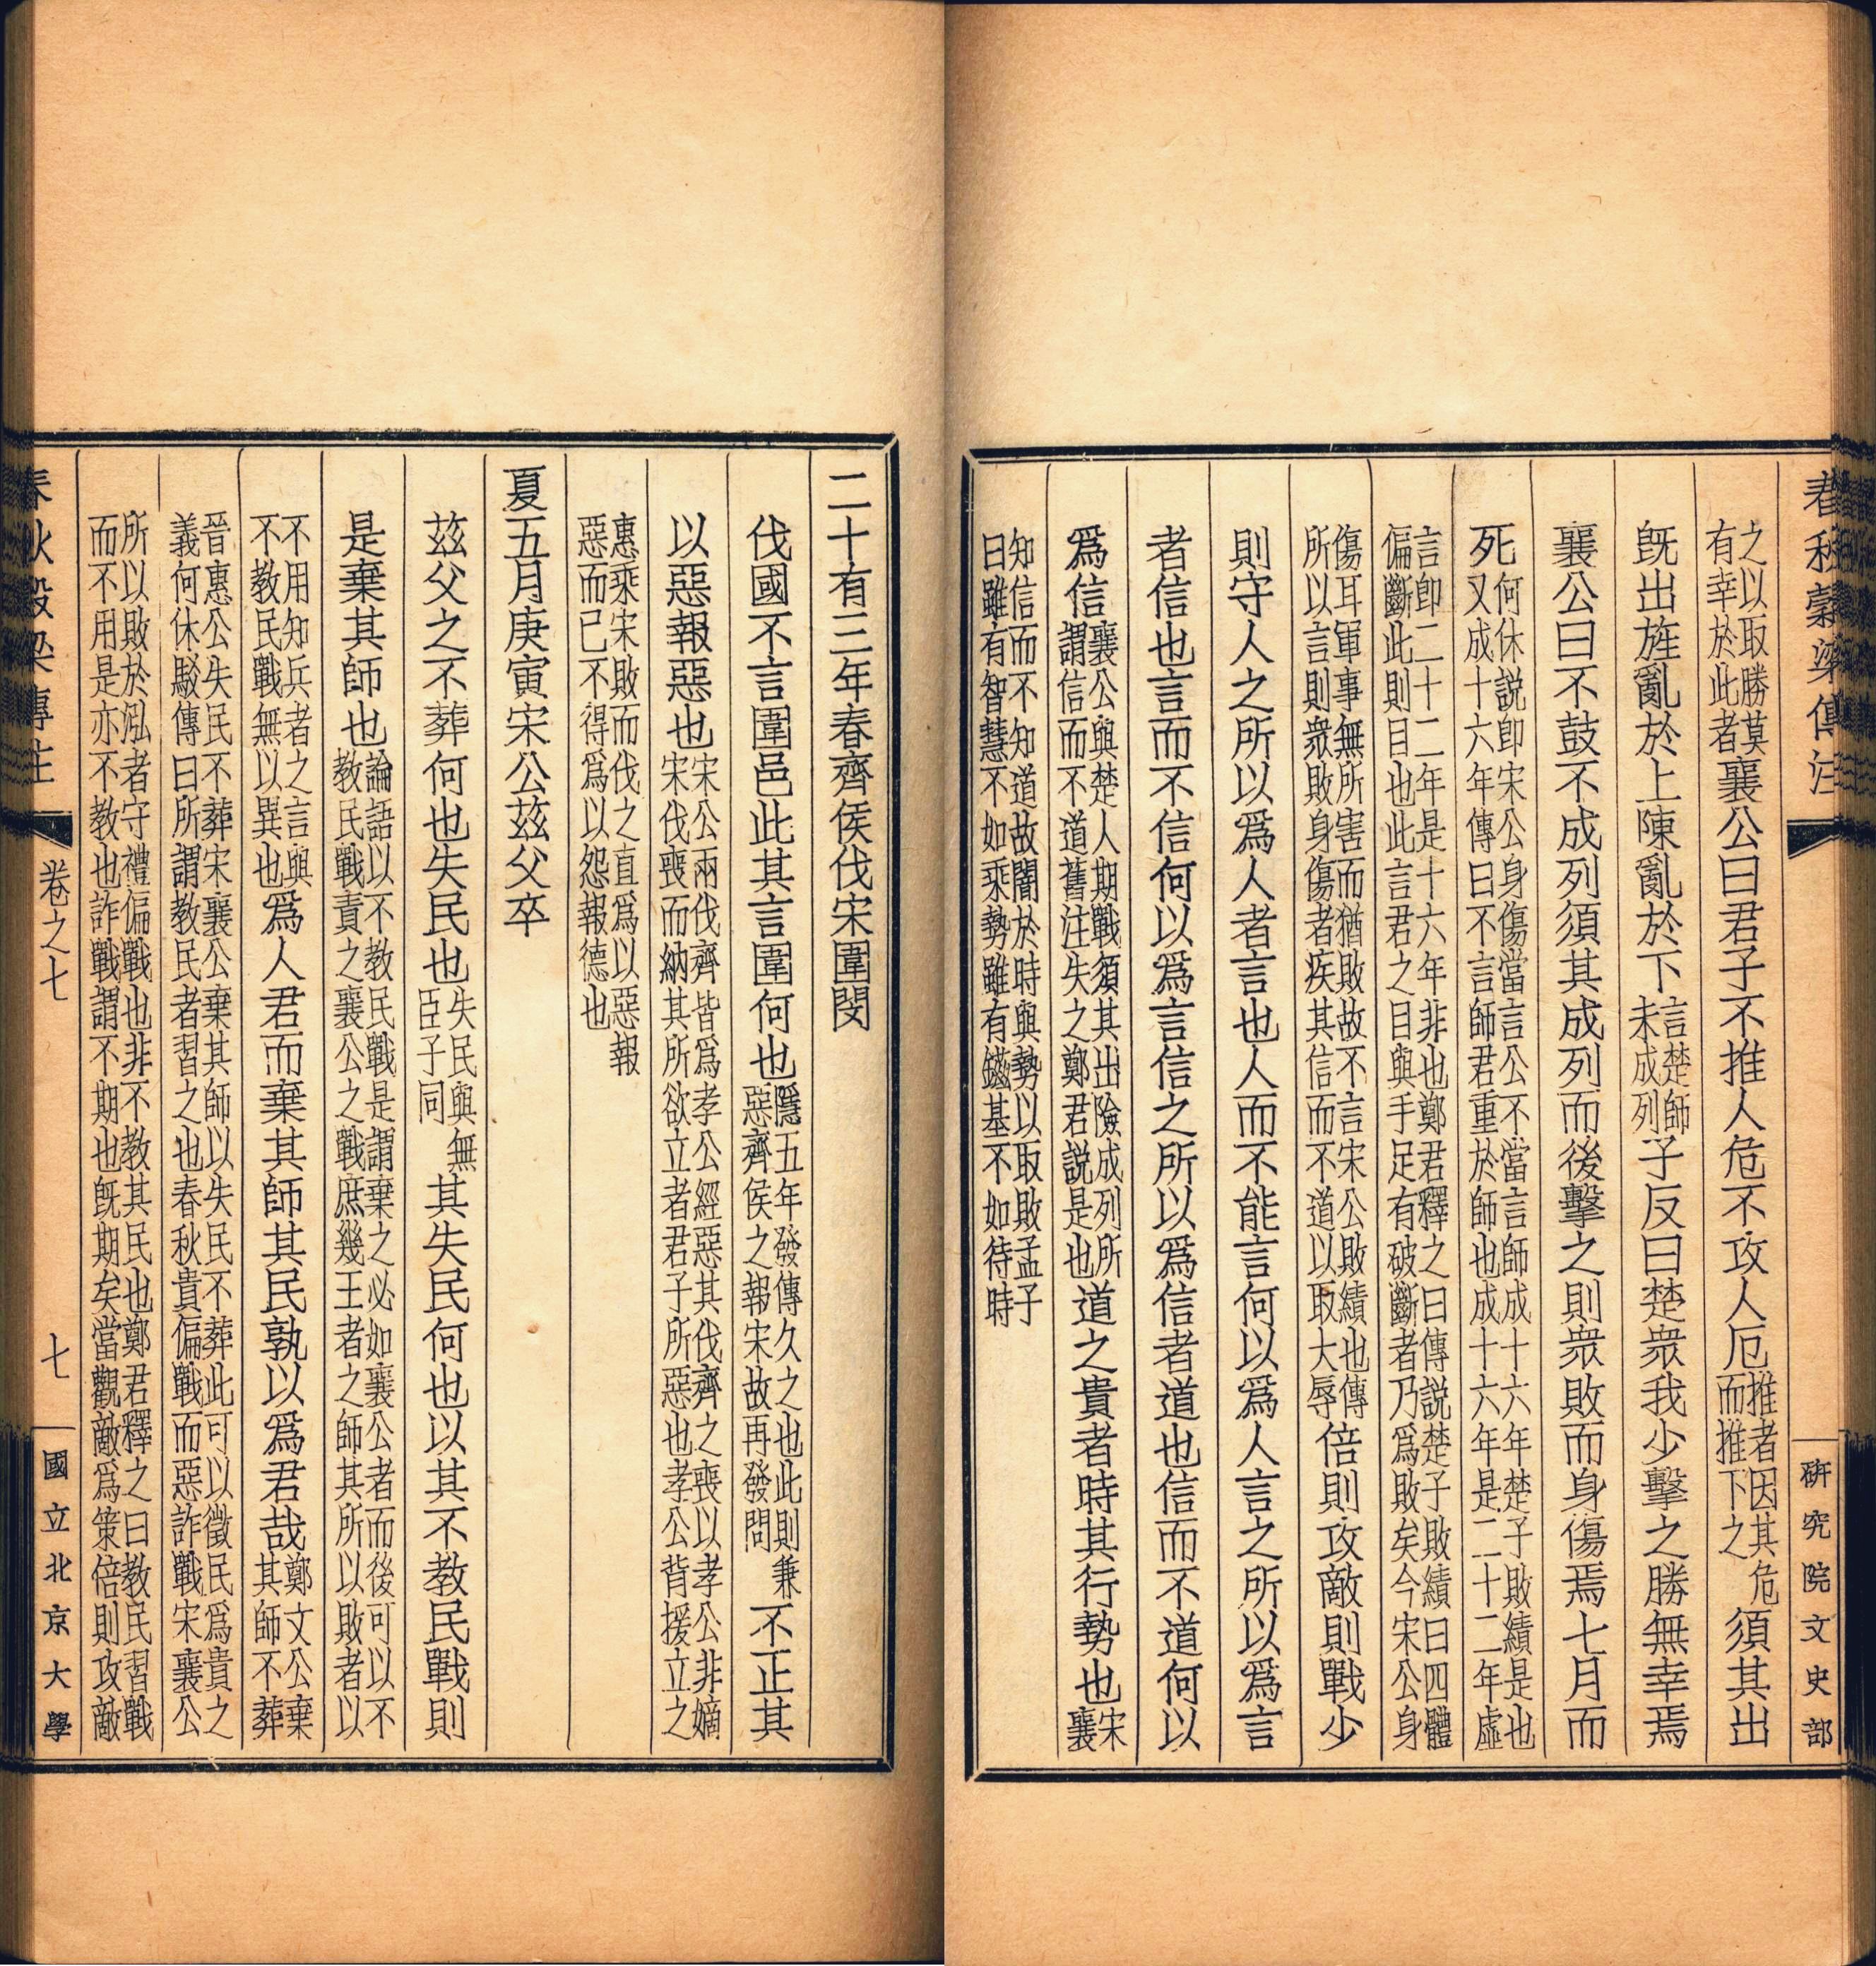 春秋穀梁傳注
研究院文史部
之以取勝莫
有幸於此者
襄公曰君子不推人危不攻人厄
推者因其危
而推下之
須其出
既出旌亂於上陳亂於下
言楚師
未成列
子反曰楚衆我少擊之勝無幸焉
襄公曰不鼓不成列須其成列而後擊之則衆敗而身傷焉七月而
死
何休説即宋公身傷當言公不當言師成十六年楚子敗績是也
又成十六年傳曰不言師君重於師也成十六年是二十二年虛
言即二十二年是十六年非也鄭君釋之曰傳説楚子敗績曰四體
偏斷此則目也此言君之目與手足有破斷者乃爲敗矣今宋公身
傷耳軍事無所害而猶敗故不言宋公敗績也傳
所以言則衆敗身傷者疾其信而不道以取大辱
倍則攻敵則戰少
則守人之所以爲人者言也人而不能言何以爲人言之所以爲言
者信也言而不信何以爲言信之所以爲信者道也信而不道何以
爲信
襄公與楚人期戰須其出險成列所
謂信而不道舊注失之鄭君説是也
道之貴者時其行勢也
宋
襄
知信而不知道故闇於時與勢以取敗孟子
曰雖有智慧不如乘勢雖有鎡基不如待時
二十有三年春齊侯伐宋圍閔
伐國不言圍邑此其言圍何也
隱五年發傳久之也此則兼
惡齊侯之報宋故再發問
不正其
以惡報惡也
宋公兩伐齊皆爲孝公經惡其伐齊之喪以孝公非嫡
宋伐喪而納其所欲立者君子所惡也孝公背援立之
惠乘宋敗而伐之直爲以惡報
惡而已不得爲以怨報德也
夏五月庚寅宋公茲父卒
茲父之不葬何也失民也
失民與無
臣子同
其失民何也以其不教民戰則
是棄其師也
論語以不教民戰是謂棄之必如襄公者而後可以不
教民戰責之襄公之戰庶幾王者之師其所以敗者以
不用知兵者之言與
不教民戰無以異也
爲人君而棄其師其民孰以爲君哉
鄭文公棄
其師不葬
晉惠公失民不葬宋襄公棄其師以失民不葬此可以徵民爲貴之
義何休駁傳曰所謂教民者習之也春秋貴偏戰而惡詐戰宋襄公
所以敗於泓者守禮偏戰也非不教其民也鄭君釋之曰教民習戰
而不用是亦不教也詐戰謂不期也既期矣當觀敵爲策倍則攻敵
春秋穀梁傳注
卷之七
七
國立北京大學